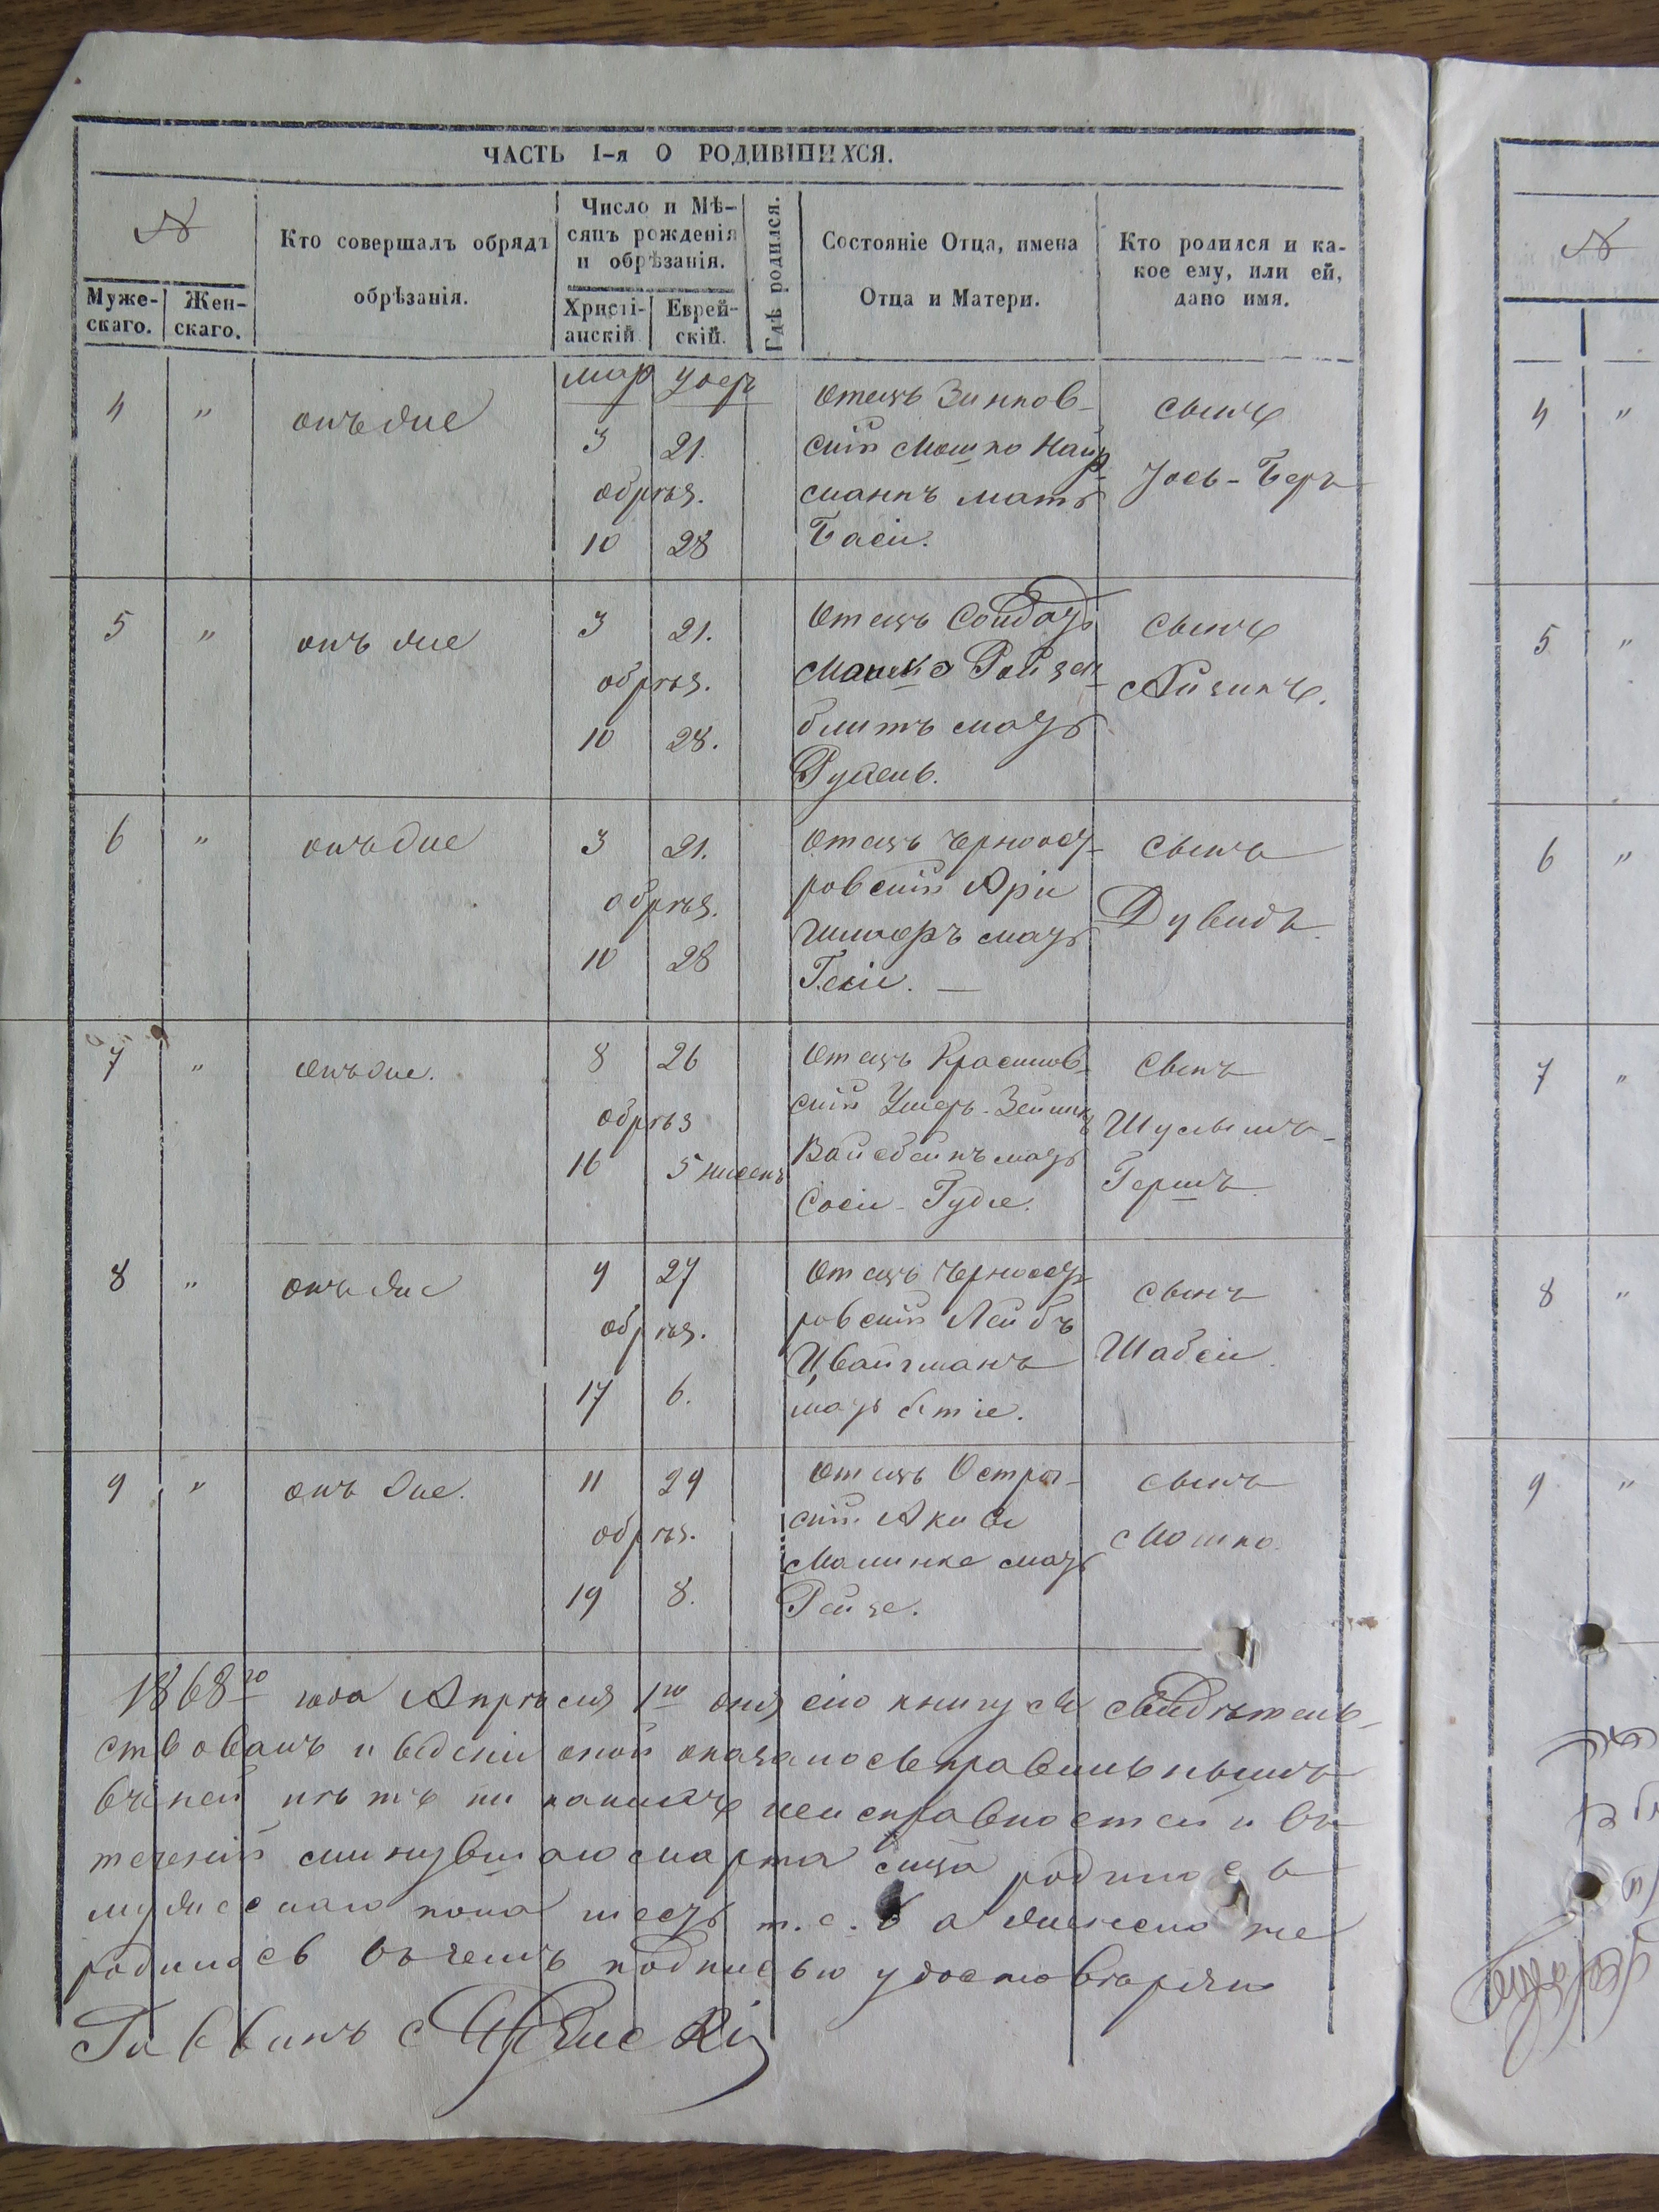 ЧАСТЬ I-я О РОДИВШИХСЯ.
№
Муже-
скаго.
Жен-
скаго.
Кто совершалъ обрядъ
обрѣзанія.
Число и Мѣ-
сяцъ рожденія
и обрѣзанія.
Христі-
анскій
Еврей-
скій.
Гдѣ родился.
Состояніе Отца, имена
Отца и Матери.
Кто родился и ка-
кое ему, или ей,
дано имя.
мар
4 " онъ же
3 21.
обрѣз.
10 28
Отецъ Зинков-
скій Мошко
матъ
Баси.
сынъ
Іось-Беръ
5 " онъ же
3 21.
обрѣз.
10 28.
Отецъ Солдатъ
Мошко Ройзен-
блитъ мать
сынъ
Айзикъ.
6 " онъ же
3 21.
обрѣз.
10 28
Отецъ Черноост-
ровскій Арія
мать
сынъ
Дувидъ.
7 " онъ же.
8 26
обрѣз
16 5 нисенъ
Отецъ Красилов-
скій Ушеръ-Зейликъ
Вайсбейнъ мать
Соси-Гудіе.
сынъ
Шулымъ-
Гершъ.
8 " онъ же
9 27
обрѣз.
17 6.
Отецъ Черноост-
ровскій Лейбъ
Цвайгманъ
мать
сынъ
Шабси.
9 " онъ же.
11 29
обрѣз.
19 8.
Отецъ Остро-
скій Акива
Малинке мать
Рейзе.
сынъ
Мошко.
1868го года Апрѣля 1го дня сію книгу я свидѣтель-
ствовалъ и веденіи оной оказалось правильнымъ
въ ней нѣтъ ни какихъ неисправностей и въ
теченій минувшаго марта мца родилось
мужескаго пола шесть т.е. 6 а женска не
родилось въ чемъ подписью удостовѣряю
Раввинъ
№
4 "
5 "
6 "
7 "
8 "
9 "